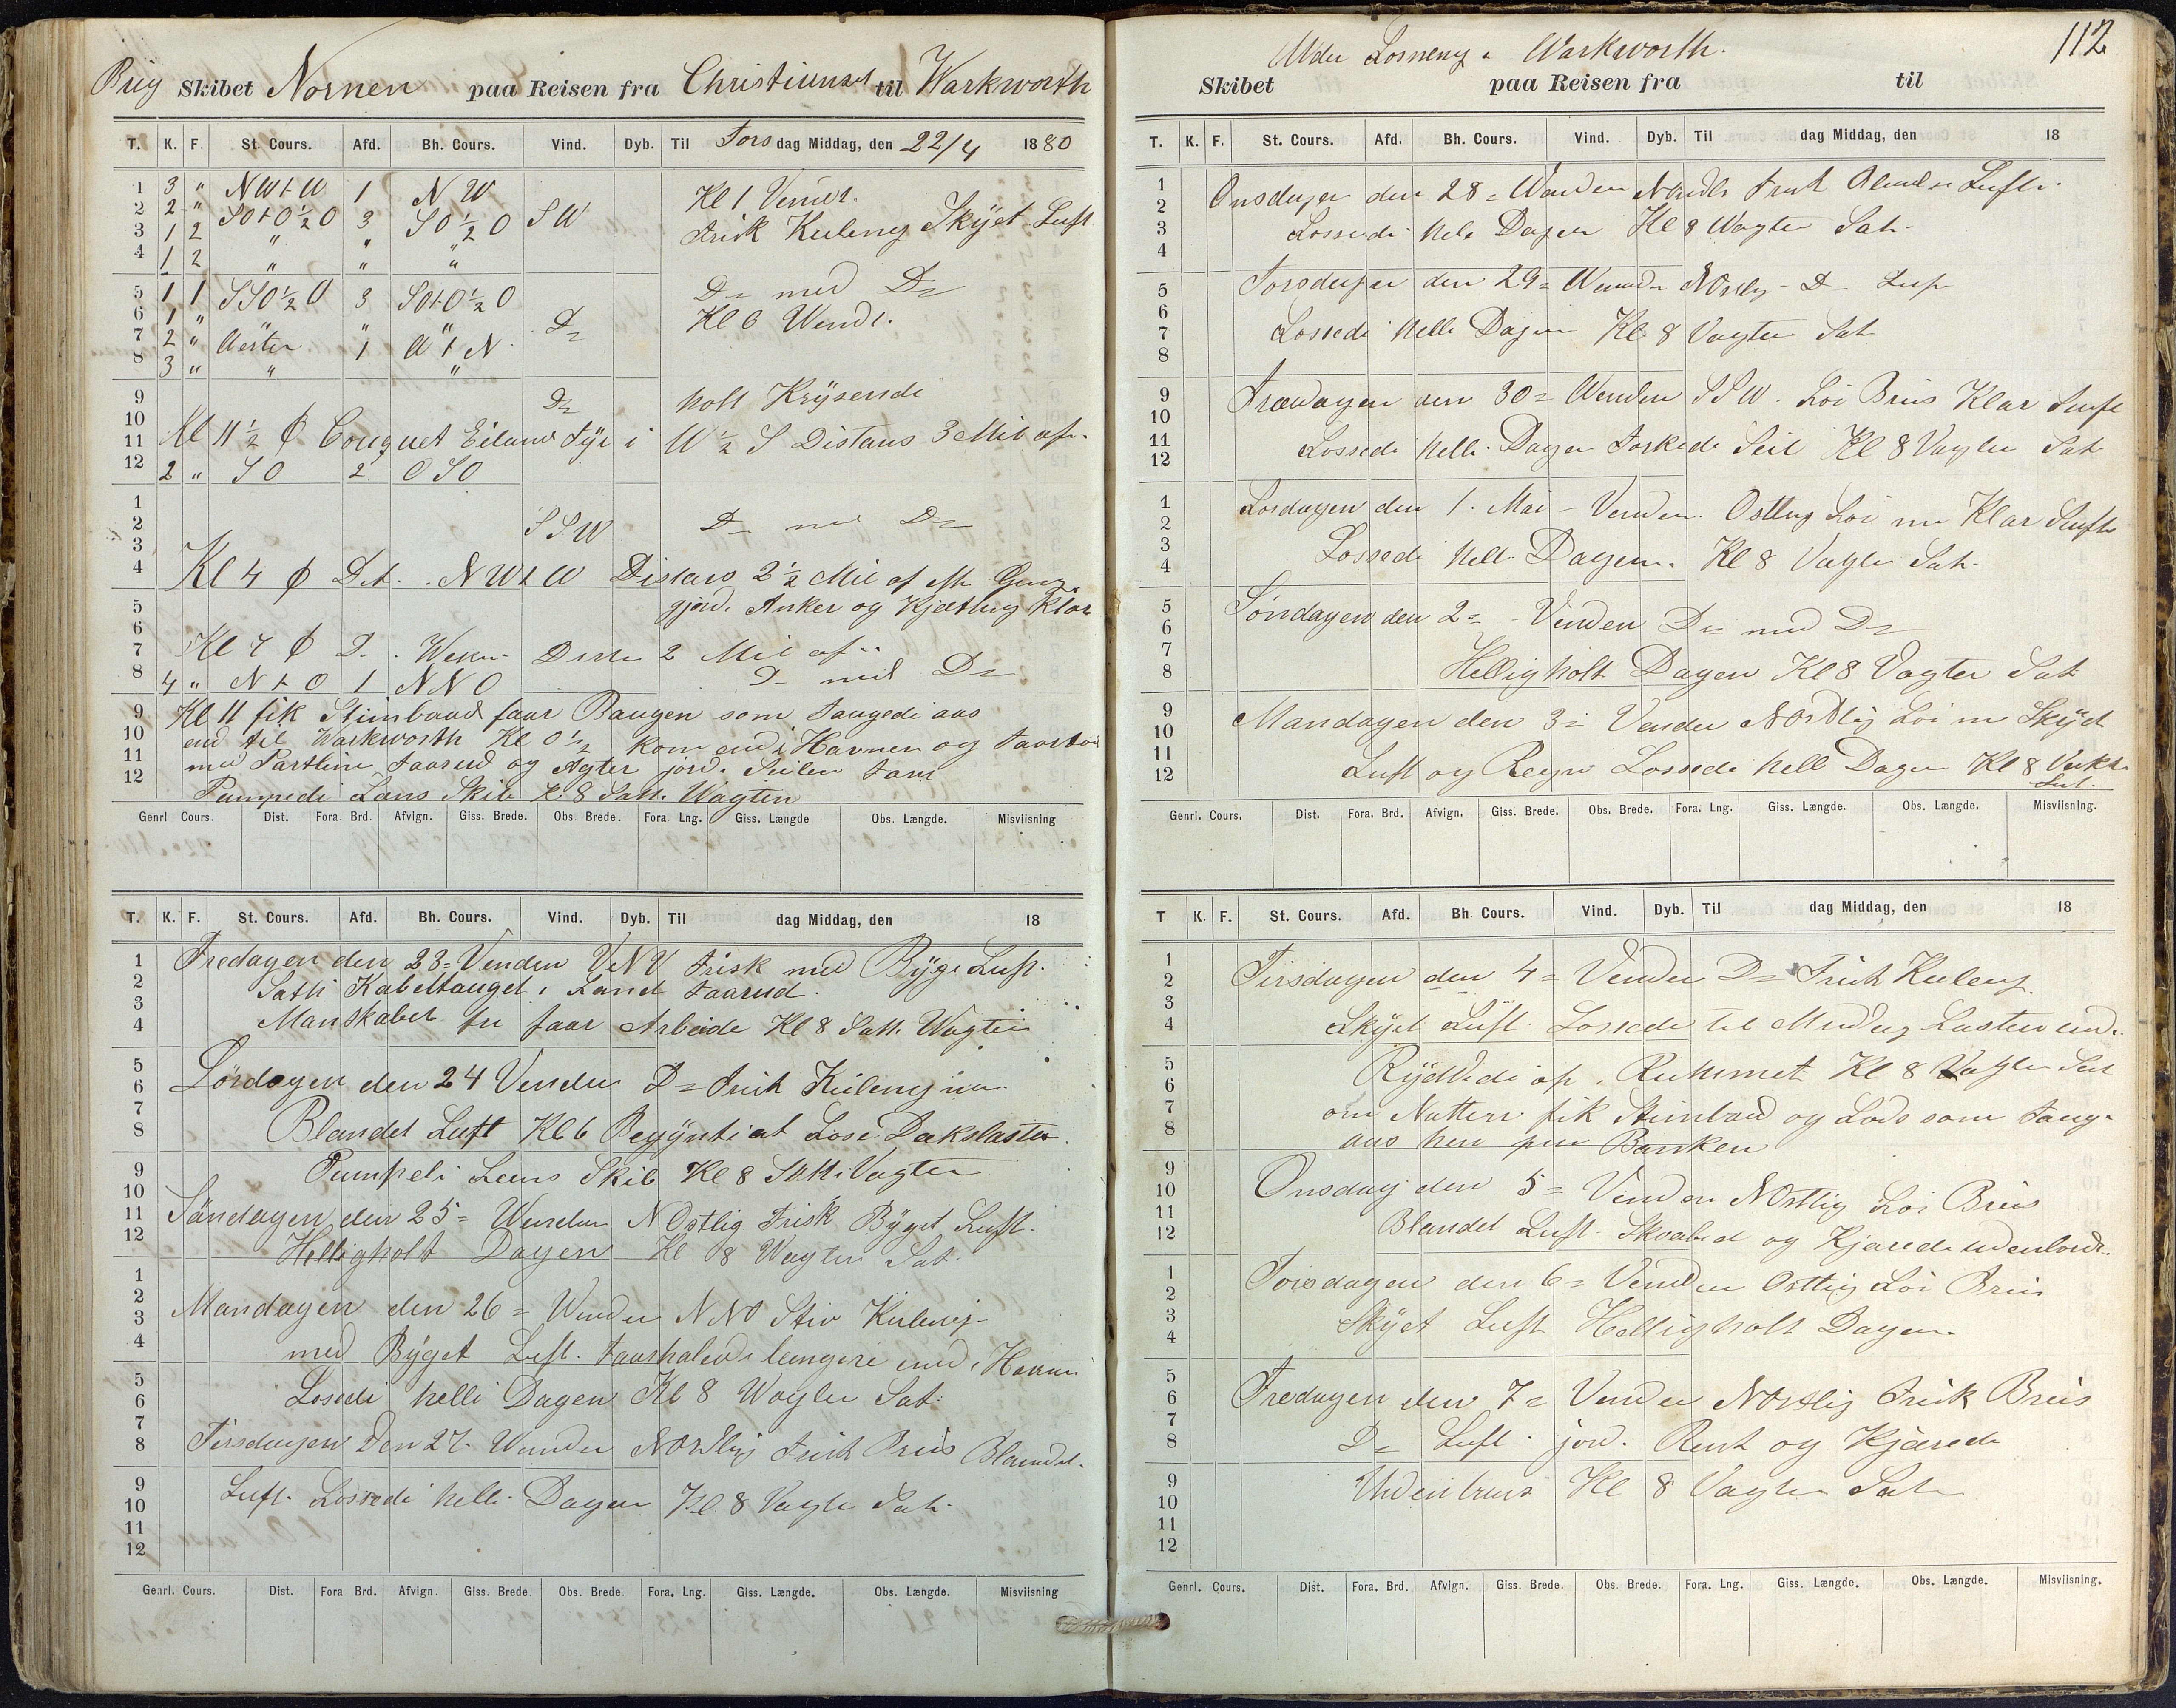 Brig Skibet Nornen paa Reisen fra Christiansd til Warkworth
T. K. F. St. Cours. Afd. Bh. Cours. Vind. Dyb. Til Torsdag Middag, den 22/4 1880
1 3 " NWtW 1 NW Kl 1 Vendt.
2 2 " SOtO½O 3 SO½O SW Frisk Kuleng Skÿet Luft
3 1 2 " " "
4 1 2 " " "
5 1 1 SSO½O 3 SOtO½O D= med D=
6 1 " Kl 6 Wendt.
7 2 " Wester 1 WtN D=
8 3 " " "
9 D= holt Krÿsende
10
11 Kl 11½ Couquet Eiland Fÿr i W½S Distans 3 Mil af.
12 2 " SO 2 OSO
1
2 SSW D= med D=
3
4 Kl 4 Det. NWtW Distans 2½ Mil af
5 gjord. Anker og Kjetting Klar
6
7 Kl 7 D. Wester Distn 2 Mil af
8 4 " NtO 1 NNO D= med D=
9 Kl 11 fik Stimbaad faar Baugen som taugede aas
10 ind til Warkworth Kl 0½ kom ind i Havnen og
11 med Partlin faarud og Agter jord. Seilen fast
12 Pumpede Lans Skib Kl 8 Satt. Wagten
Genrl Cours. Dist. Fora. Brd. Afvign. Giss. Brede. Obs. Brede. Fora Lng. Giss. Længde Obs. Længde. Misviisning
T. K. F. St. Cours. Afd. Bh. Cours. Vind. Dyb. Til dag Middag, den 18
1 Fredagen den 23= Venden VNV Frisk med Bÿge Luft.
2 Satti Kabeltauget i Land faarud.
3
4 Manskabet fri faar Arbeide Kl 8 Satt. Wagten
5
6 Lørdagen den 24 Venden D= Frisk Kuleng
7
8 Blandet Luft Kl 6 Begÿnti at Lose Dækslasten.
9 Pumpeli Lens Skib Kl 8 Satti Vagten
10
11 Søndagen den 25= Wenden NOstlig Frisk Bÿget Luft.
12 Helligholt Dagen Kl 8 Wagten Sat.
1
2
3 Mandagen den 26= Wenden NNO Stiv Kuleng
4 med Bÿget Luft. faarhalede længere ind i Havnen
5
6 Losede helli Dagen Kl 8 Wagten Sat.
7
8 Tirsdagen Den 27. Wenden NOstlig Frisk Bris Blandet.
9
10 Luft. Lossede helli Dagen Kl. 8 Vagte Sat.
11
12
Genrl. Cours. Dist. Fora Brd. Afvign. Giss. Brede. Obs. Brede. Fora. Lng. Giss. Længde. Obs. Længde. Misviisning
112
Under Losneng i Warkworth.
Skibet paa Reisen fra til
T. K. F. St. Cours. Afd. Bh. Cours. Vind. Dyb. Til dag Middag, den 18
1 Onsdagen den 28= Wenden Nordlig Frisk Luft.
2
3 Lossede hele Dagen Kl 8 Wagten Sat.
4
5 Torsdagen den 29= Wenden NOstlig D= Luft
6
7 Lossede helle Dagen Kl. 8 Vagten Sat
8
9 Fredagen den 30= Wenden SSW. Loi Bris Klar Luft
10
11 Lossede helle Dagen Torkede Seil Kl 8 Vagten Sat
12
1 Lørdagen den 1. Mai – Venden Ostlig Loi Klar Luft
2
3 Lossede hell. Dagen. Kl 8 Vagten Sat.
4
5 Søndagen den 2= Venden D= med D=
6
7
8 Helligholt Dagen Kl 8 Vagten Sat
9 Mandagen den 3= Venden NOstlig Loi Skÿet
10
11 Luft og Regn Lossede hell Dagen Kl 8 Vakt
12 Sat.
Genrl. Cours. Dist. Fora. Brd. Afvign. Giss. Brede. Obs. Brede. Fora. Lng. Giss. Længde. Obs. Længde. Misviisning.
T K. F. St. Cours. Afd. Bh. Cours. Vind. Dyb. Til dag Middag, den 18
1 Tirsdagen den 4= Venden D= Frisk Kuleng
2
3
4 Skÿet Luft Lossede til Middag Lasten ud.
5 Rÿddede op i Rummet Kl 8 Vagten Sat
6
7 om Natten fik Stimbaad og Lods som Taug
8 aas hen paa Banken
9
10 Onsdag den 5= Venden NOstlig Loi Bris
11
12 Blandet Luft. Skrabed og Kjærede udenbords.
1 Torsdagen den 6= Venden Ostlig Loi Bris
2
3 Skÿet Luft Helligholt Dagen.
4
5
6 Fredagen den 7= Venden NOstlig Frisk Breis
7
8 D= Luft. jord. Rent og Kjærede
9
10 Udenbords Kl 8 Vagten Sat
11
12
Genrl. Cours. Dist. Fora. Brd. Afvign. Giss. Brede. Obs. Brede. Fora. Lng. Giss. Længde. Obs. Længde. Misviisning.